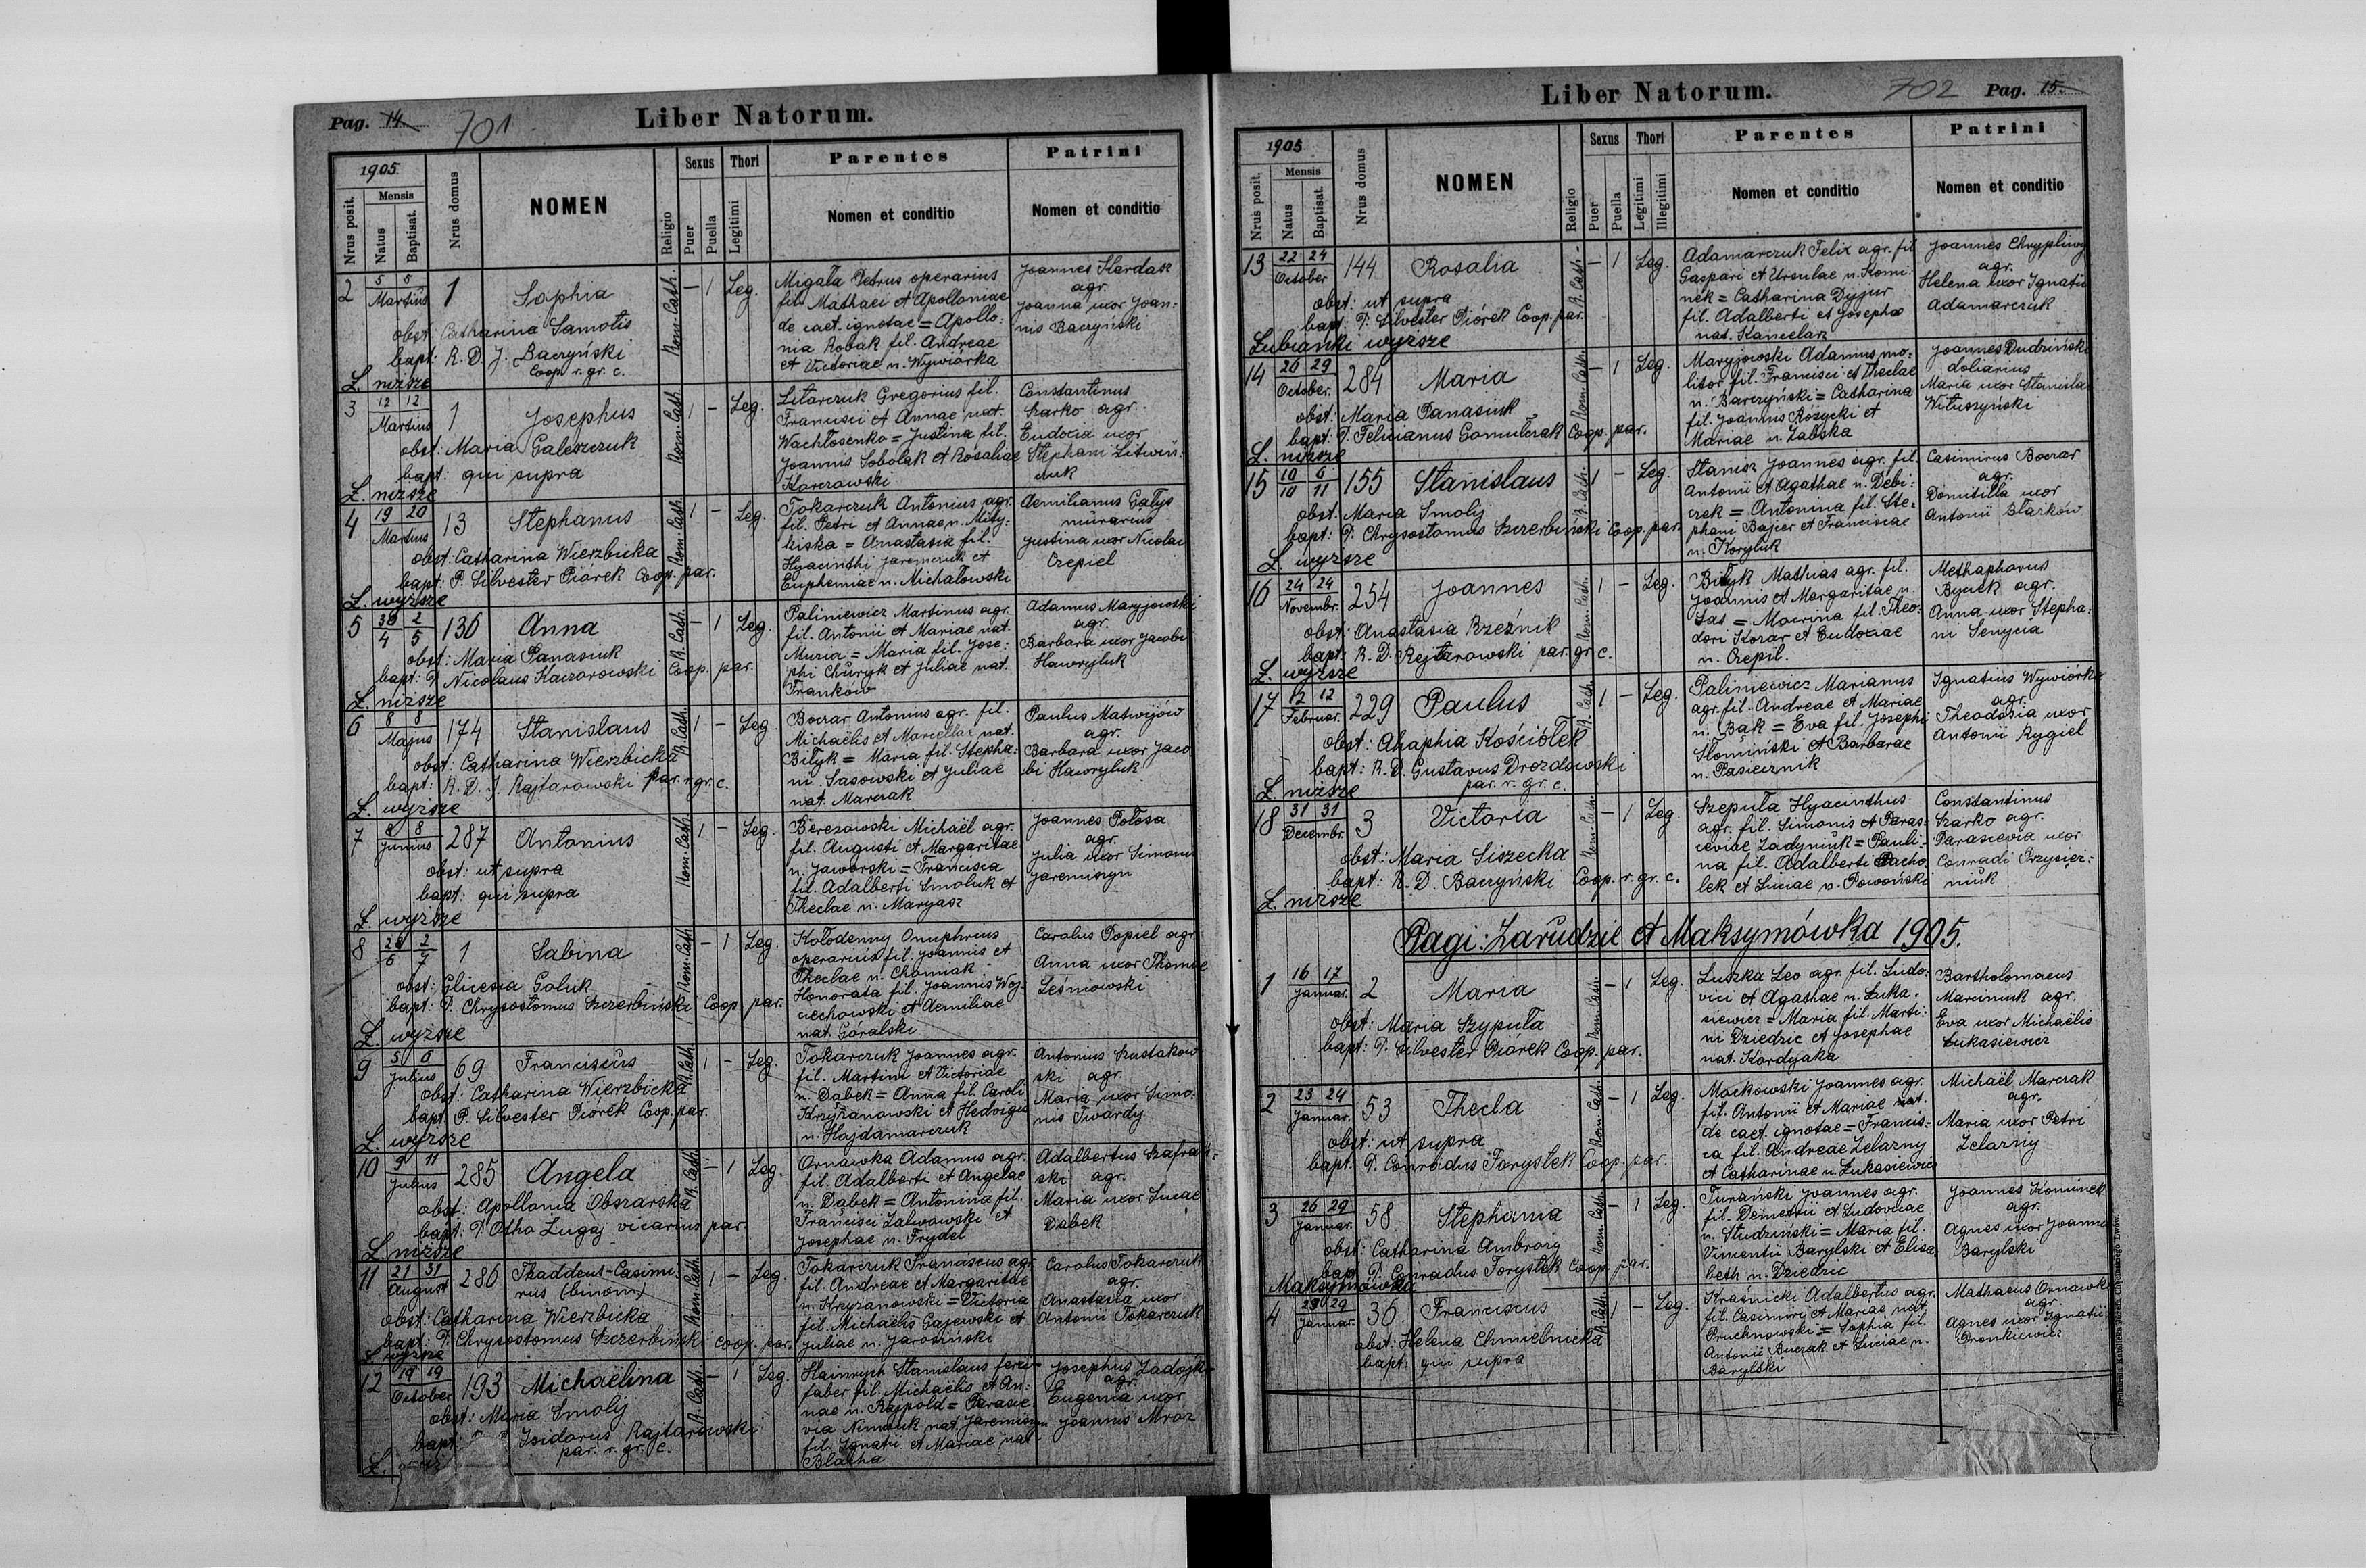 Pag. 14.
701
Liber Natorum.
1905
Mensis
Nrus posit.
Natus
Baptisat.
Nrus domus
NOMEN
Religio
Sexus
Puer
Puella
Thori
Legitimi
Parentes
Nomen et conditio
Patrini
Nomen et conditio
2
5 5
Martius
1
Sophia
Rom. Cath.
– 1 Leg.
obst: Catharina Samotis
bapt: R. D. J. Baczyński
Coop. r. gr. c.
Migała Petrus operarius
fil. Mathaei et Apolloniae
de caet. ignotae = Apollo:
nia Robak fil. Andreae
et Victoriae n. Wywiórka
Joannes Kardak
agr.
Joanna uxor Joan:
nis Baczyński
Ł. niższe
3
12 12
Martius
1
Josephus
Rom. Cath.
1 – Leg.
obst: Maria Galeszczuk
bapt: qui supra
Litarczuk Gregorius fil.
Francisci et Annae nat.
Wachłosenko = Justina fil.
Joannis Sobolak et Rosaliae
Karczawski
Constantinus
Szarko agr.
Eudocia uxor
Stephani Litwiń:
czuk
Ł. niższe
4
19 20
Martius
13
Stephanus
Rom. Cath.
1 – Leg.
obst: Catharina Wierzbicka
bapt: P. Silvester Piórek Coop. par.
Tokarczuk Antonius agr.
fil. Petri et Annae n. Mity:
kiska = Anastasia fil.
Hyacinthi Jaremczuk et
Euphemiae n. Michałowski
Aemilianus Gałys
murarius
Justina uxor Nicolai
Czepiel
Ł. wyższe
5
30 2
4 5
136
Anna
R. Cath.
– 1 Leg.
obst: Maria Panasiuk
bapt: P. Nicolaus Kaczorowski Coop. par.
Paliniewicz Martinus agr.
fil. Antonii et Mariae nat.
Muria = Maria fil. Jose:
phi Churyk et Juliae nat.
Franków
Adamus Maryjowski
agr.
Barbara uxor Jacobi
Hawryluk
Ł. niższe
6
8 8
Majus
174
Stanislaus
R. Cath.
1 – Leg.
obst: Catharina Wierzbicka
bapt: R. D. J. Rajtarowski par. r. gr. c.
Boczar Antonius agr. fil.
Michaëlis et Marcellae nat.
Bityk = Maria fil. Stepha:
ni Sasowski et Juliae
nat. Marczak
Paulus Matwijów
agr.
Barbara uxor Jaco
bi Hawryluk
Ł. wyższe
7
8 8
Junius
287
Antonius
Rom. Cath.
1 – Leg.
obst: ut supra
bapt: qui supra
Berezowski Michaël agr.
fil. Augusti et Margaritae
n. Jaworski = Francisca
fil. Adalberti Smoluk et
Theclae n. Maryasz
Joannes Połosa
agr.
Julia uxor Simonis
Jaremiszyn
Ł. wyższe
8
28 2
6 7
1
Sabina
Rom. Cath.
– 1 Leg.
obst: Gliceria Galuk
bapt: P. Chrysostomus Szczerbiński Coop. par.
Kołodenny Onuphrius
operarius fil. Joannis et
Theclae n. Chomiak
Honorata fil. Joannis Woj
ciechowski et Aemiliae
nat. Góralski
Carolus Popiel agr.
Anna uxor Thomae
Leśniowski
Ł. wyższe
9
5 6
Julius
69
Franciscus
R. Cath.
1 – Leg.
obst: Catharina Wierzbicka
bapt: P. Silvester Piórek Coop. par.
Tokarczuk Joannes agr.
fil. Martini et Victoriae
n. Dąbek = Anna fil. Caroli
Krzyżanowski et Hedvigis
n. Hajdamarczuk
Antonius Szustakow
ski agr.
Maria uxor Simo:
nis Twardy
Ł. wyższe
10
9 11
Julius
285
Angela
R. Cath.
– 1 Leg.
obst: Apollonia Obszarska
bapt: P. Otho Ługaj vicarius par.
Ornawka Adamus agr.
fil. Adalberti et Angelae
n. Dąbek = Antonina fil.
Francisci Zalwowski et
Josephae n. Frydel
Adalbertus Szafrań:
ski agr.
Maria uxor Lucae
Dąbek
Ł. niższe
11
21 31
August
286
Thaddeus-Casimi:
rus (binom)
Rom. Cath.
1 – Leg.
obst: Catharina Wierzbicka
bapt: P. Chrysostomus Szczerbiński coop. par.
Tokarczuk Franciscus agr.
fil. Andreae et Margaritae
n. Krzyżanowski = Victoria
fil. Michaëlis Gajewski et
Juliae n. Jarosiński
Carolus Tokarczuk
agr.
Anastazia uxor
Antonii Tokarczuk
Ł. wyższe
12
19 19
October
193
Michaëlina
R. Cath.
– 1 Leg.
obst: Maria Smolij
bapt: Isidorus Rajtarowski
par. r. gr. c.
Hainrych Stanislaus ferri
faber fil. Michaëlis et An:
nae n. Rappold = Parasce
via Nimczuk nat. Jaremiszyn
fil. Ignatii et Mariae nat.
Blacha
Josephus Zadojko
agr.
Eugenia uxor
Joannis Mroz
Ł.
Liber Natorum.
702
Pag. 15.
1905
Mensis
Nrus posit.
Natus
Baptisat.
Nrus domus
NOMEN
Religio
Sexus
Puer
Puella
Thori
Legitimi
Illegitimi
Parentes
Nomen et conditio
Patrini
Nomen et conditio
13
22 24
October
144
Rosalia
R. Cath.
– 1 Leg.
obst: ut supra
bapt: P. Silvester Piórek Coop. par.
Adamarczuk Felix agr. fil.
Gaspari et Ursulae n. Komi:
nek = Catharina Dyjur
fil. Adalberti et Josephae
nat. Kancelar
Joannes Chrypliwy
agr.
Helena uxor Ignatii
Adamarczuk
Łubianki wyższe
14
26 29
October
284
Maria
Rom. Cath.
– 1 Leg.
obst: Maria Panasiuk
bapt: P. Felicianus Gomułczak Coop. par.
Maryjowski Adamus mo:
litor fil. Francisci et Theclae
n. Barczyński = Catharina
fil. Joannis Różycki et
Mariae n. Zabska
Joannes Dudziński
doliarius
Maria uxor Stanislai
Wituszyński
Ł. niższe
15
10 6
10 11
155
Stanislaus
R. Cath.
1 – Leg.
obst: Maria Smolij
bapt: P. Chrysostomus Szczerbiński Coop. par.
Stanisz Joannes agr. fil.
Antonii et Agathae n. Debi:
czek = Antonina fil. Ste:
phani Bajcer et Franciscae
n. Koryluk
Casimirus Boczar
agr.
Domitilla uxor
Antonii Blarków
Ł. wyższe
16
24 24
Novembr.
254
Joannes
Rom. Cath.
1 – Leg.
obst: Anastasia Rzeźnik
bapt: R. D. Rejtarowski par. gr. c.
Bityk Mathias agr. fil.
Joannis et Margaritae n.
Sas = Macrina fil. Theo:
dori Kozar et Eudociae
n. Czepil.
Methaphorus
Byczek agr.
Anna uxor Stepha:
ni Senycia
Ł. wyższe
17
12 12
Februar.
229
Paulus
R. Cath.
1 – Leg.
obst: Ahaphia Kościółek
bapt: R. D. Gustavus Drozdowski
par. r. gr. c.
Paliniewicz Marianus
agr. fil. Andreae et Mariae
n. Bąk = Eva fil. Josephi
Słomiński et Barbarae
n. Pasiecznik
Ignatius Wywiórka
agr.
Theodozia uxor
Antonii Rygiel
Ł. niższe
18
31 31
Decembr.
3
Victoria
Rom. Cath.
– 1 Leg.
obst: Maria Siszecka
bapt: R. D. Baczyński Coop. r. gr. c.
Szepuła Hyacinthus
agr. fil. Simonis et Paras:
ceviae Zadyniuk = Pauli:
na fil. Adalberti Pacho
lek et Luciae n. Powoński
Constantinus
Szarko agr.
Parascevia uxor
Conradi Przysięż:
niuk
Ł. niższe
Pagi: Zarudzie et Maksymówka 1905.
1
16 17
Januar.
2
Maria
Rom. Cath.
– 1 Leg.
obst: Maria Szypuła
bapt: P. Silvester Piórek Coop. par.
Luszka Leo agr. fil. Ludo:
vici et Agathae n. Łuka:
siewicz = Maria fil. Marti:
ni Dziedzic et Josephae
nat. Kordyaka
Bartholomaeus
Marciniuk agr.
Eva uxor Michaëlis
Łukasiewicz
2
23 24
Januar.
53
Thecla
Rom. Cath.
– 1 Leg.
obst: ut supra
bapt: P. Conradus Forystek Coop. par.
Maćkowski Joannes agr.
fil. Antonii et Mariae nat.
de caet. ignotae = Francis:
ca fil. Andreae Żelazny
et Catharinae n. Łukasiewicz
Michaël Marczak
agr.
Maria uxor Petri
Żelazny
3
26 29
Januar.
58
Stephania
Rom. Cath.
– 1 Leg.
obst: Catharina Ambrozy
bapt: P. Conradus Forystek Coop. par.
Turański Joannes agr.
fil. Demetrii et Ludovicae
n. Studziński = Maria fil.
Vincentii Barylski et Elisa,
beth n. Dziedzic
Joannes Kominek
agr.
Agnes uxor Joannis
Barylski
Maksymówka
4
29 29
Januar.
36
Franciscus
R. Cath.
1 – Leg.
obst: Helena Chmielnicka
bapt: qui supra
Kraśnicki Adalbertus agr.
fil. Casimiri et Mariae nat.
Pruchnowski = Sophia fil.
Antonii Buczak et Luciae n.
Barylski
Mathaeus Ornawka
agr.
Agnes uxor Ignatii
Gronkiewicz
Drukarnia Katolicka Józefa Chęcińskiego Lwów.